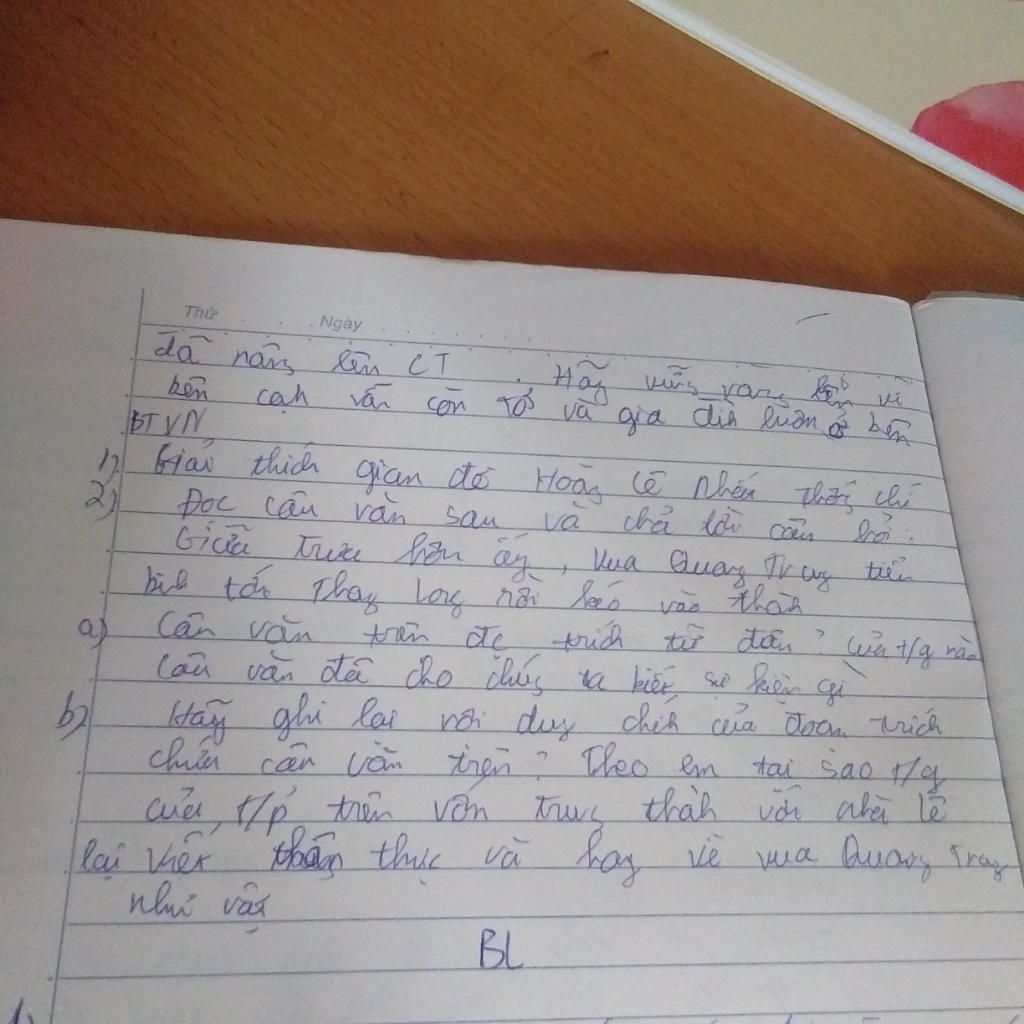 Thứ Ngày
đã nâng lên CT. Hãy vững vàng lên vì
bên cạh vẫn còn tớ và gia đìh luôn ở bên
BTVN
1) Giải thích gian đố Hoàg Lê Nhất thốg chí
2) Đọc câu văn sau và chả lời câu hỏi:
Giữa trưa hôm ấy, vua Quang Trug tiến
bih tới Thag Long rồi kéo vào thàh
a) Câu văn trên đc trích từ đâu? của t/g nào
câu văn đã cho chúg ta biết sự kiện gì
b) Hãy ghi lại nội dug chíh của đoạn trích
chứa câu văn trên? Theo em tại sao t/g
của t/p trên vốn trug thàh với nhà Lê
lại viết thực và hay về vua Quang Trug
như vậy
BL